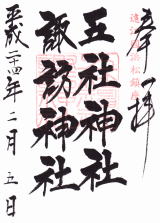 奉拝
遠江國濱松鎮座
五社神社
諏訪神社
平成二十四年二月五日